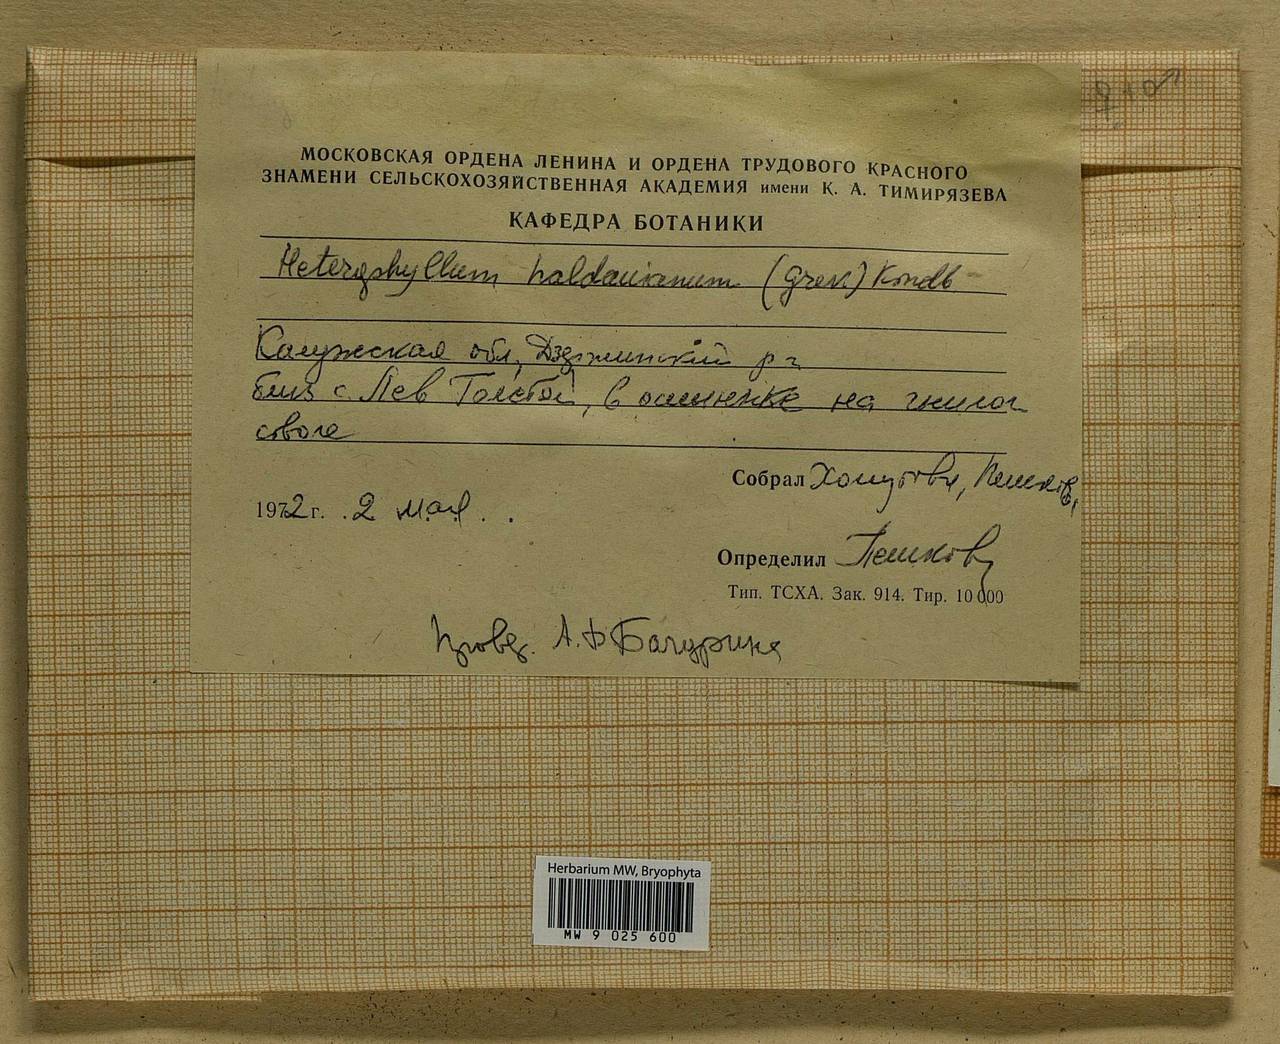 ♀+♂
МОСКОВСКАЯ ОРДЕНА ЛЕНИНА И ОРДЕНА ТРУДОВОГО КРАСНОГО
ЗНАМЕНИ СЕЛЬСКОХОЗЯЙСТВЕННАЯ АКАДЕМИЯ имени К. А. ТИМИРЯЗЕВА
КАФЕДРА БОТАНИКИ
Heterophyllum haldanianum (Grev.) Kindb
Калужская обл, Дзержинский р-н
близ с. Лев Толстой, в осиннике на гнилом
стволе
Собрал Хомутова, Пешкова,
1972 г. 2 мая
Определил Пешкова
Тип. ТСХА. Зак. 914. Тир. 10 000
Провер. А.Ф Бачурина
Herbarium MW, Bryophyta
MW 9 025 600